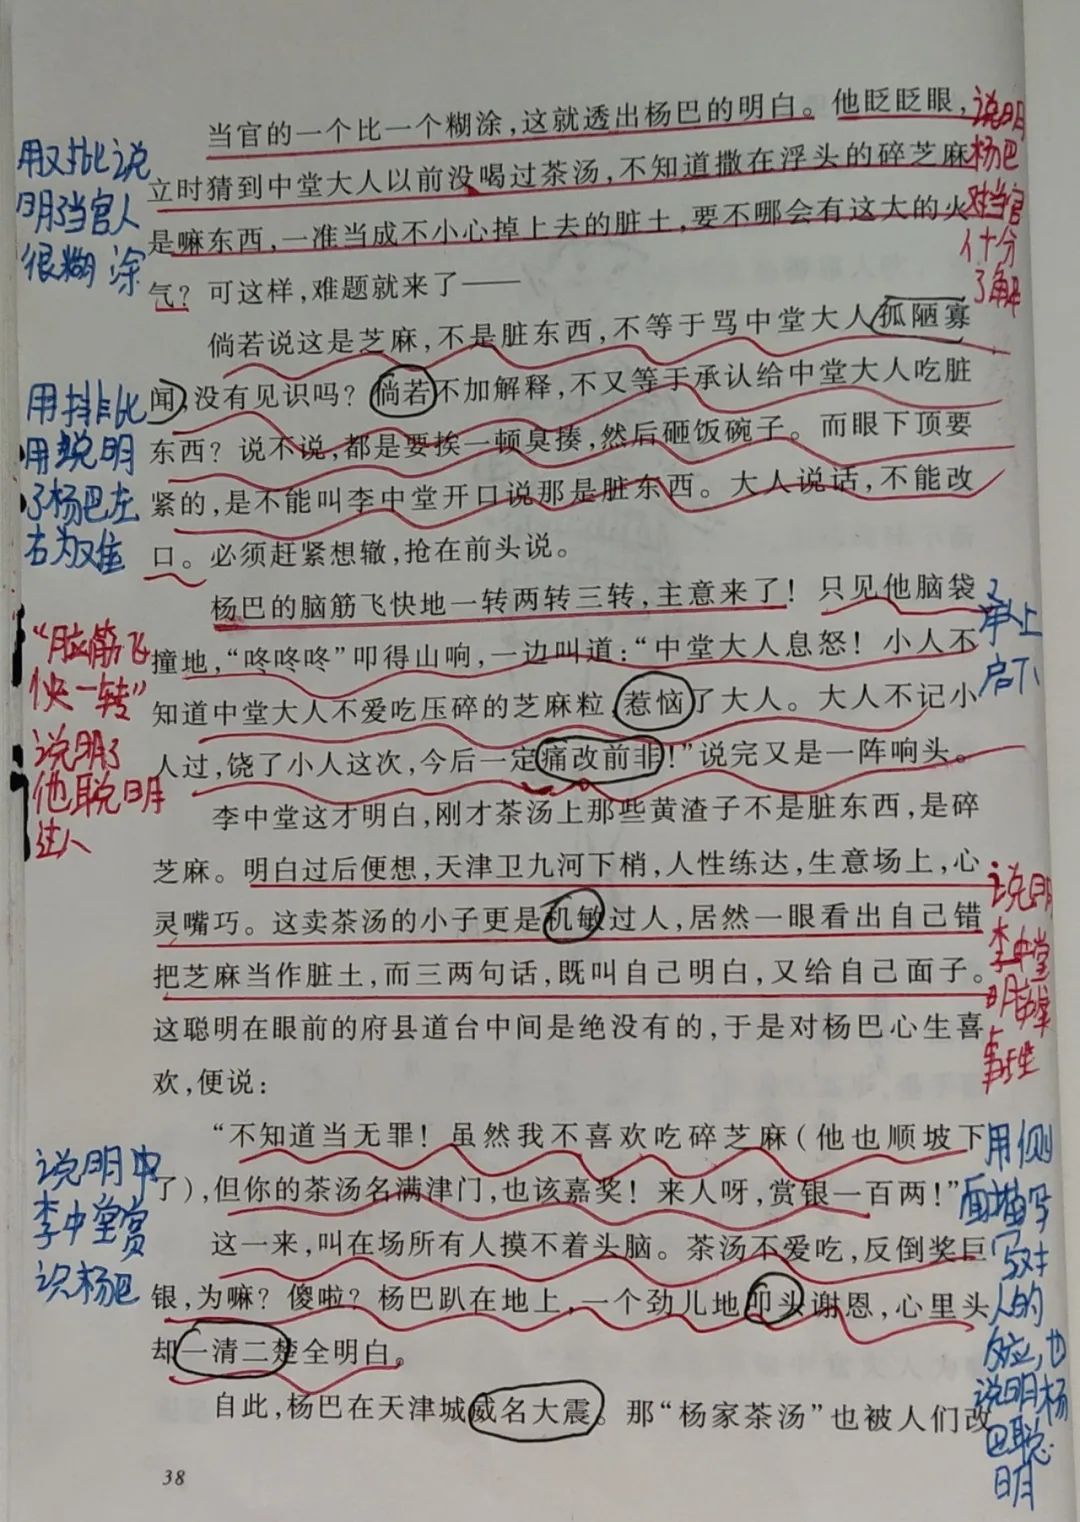 当官的一个比一个糊涂，这就透出杨巴的明白。他眨眨眼，
立时猜到中堂大人以前没喝过茶汤，不知道撒在浮头的碎芝麻
是嘛东西，一准当成不小心掉上去的脏土，要不哪会有这大的火
气？可这样，难题就来了——
倘若说这是芝麻，不是脏东西，不等于骂中堂大人孤陋寡
闻，没有见识吗？倘若不加解释，不又等于承认给中堂大人吃脏
东西？说不说，都是要挨一顿臭揍，然后砸饭碗子。而眼下顶要
紧的，是不能叫李中堂开口说那是脏东西。大人说话，不能改
口。必须赶紧想辙，抢在前头说。
杨巴的脑筋飞快地一转两转三转，主意来了！只见他脑袋
撞地，“咚咚咚”叩得山响，一边叫道：“中堂大人息怒！小人不
知道中堂大人不爱吃压碎的芝麻粒，惹恼了大人。大人不记小
人过，饶了小人这次，今后一定痛改前非！”说完又是一阵响头。
李中堂这才明白，刚才茶汤上那些黄渣子不是脏东西，是碎
芝麻。明白过后便想，天津卫九河下梢，人性练达，生意场上，心
灵嘴巧。这卖茶汤的小子更是机敏过人，居然一眼看出自己错
把芝麻当作脏土，而三两句话，既叫自己明白，又给自己面子。
这聪明在眼前的府县道台中间是绝没有的，于是对杨巴心生喜
欢，便说：
“不知道当无罪！虽然我不喜欢吃碎芝麻（他也顺坡下
了），但你的茶汤名满津门，也该嘉奖！来人呀，赏银一百两！”
这一来，叫在场所有人摸不着头脑。茶汤不爱吃，反倒奖巨
银，为嘛？傻啦？杨巴趴在地上，一个劲儿地叩头谢恩，心里头
却一清二楚全明白。
自此，杨巴在天津城威名大震。那“杨家茶汤”也被人们改
38
用对比说
明了当官人
很糊涂
用排比
用说明
了杨巴左
右为难
“脑筋飞
快一转”
说明了
他聪明
过人
说明中
李中堂赏
识杨巴
说明
杨巴
对当官
人十分
了解
承上
启下
说明
李中堂
明白
用侧
面描写
写对
人的
反应，也
说明杨
巴聪
明